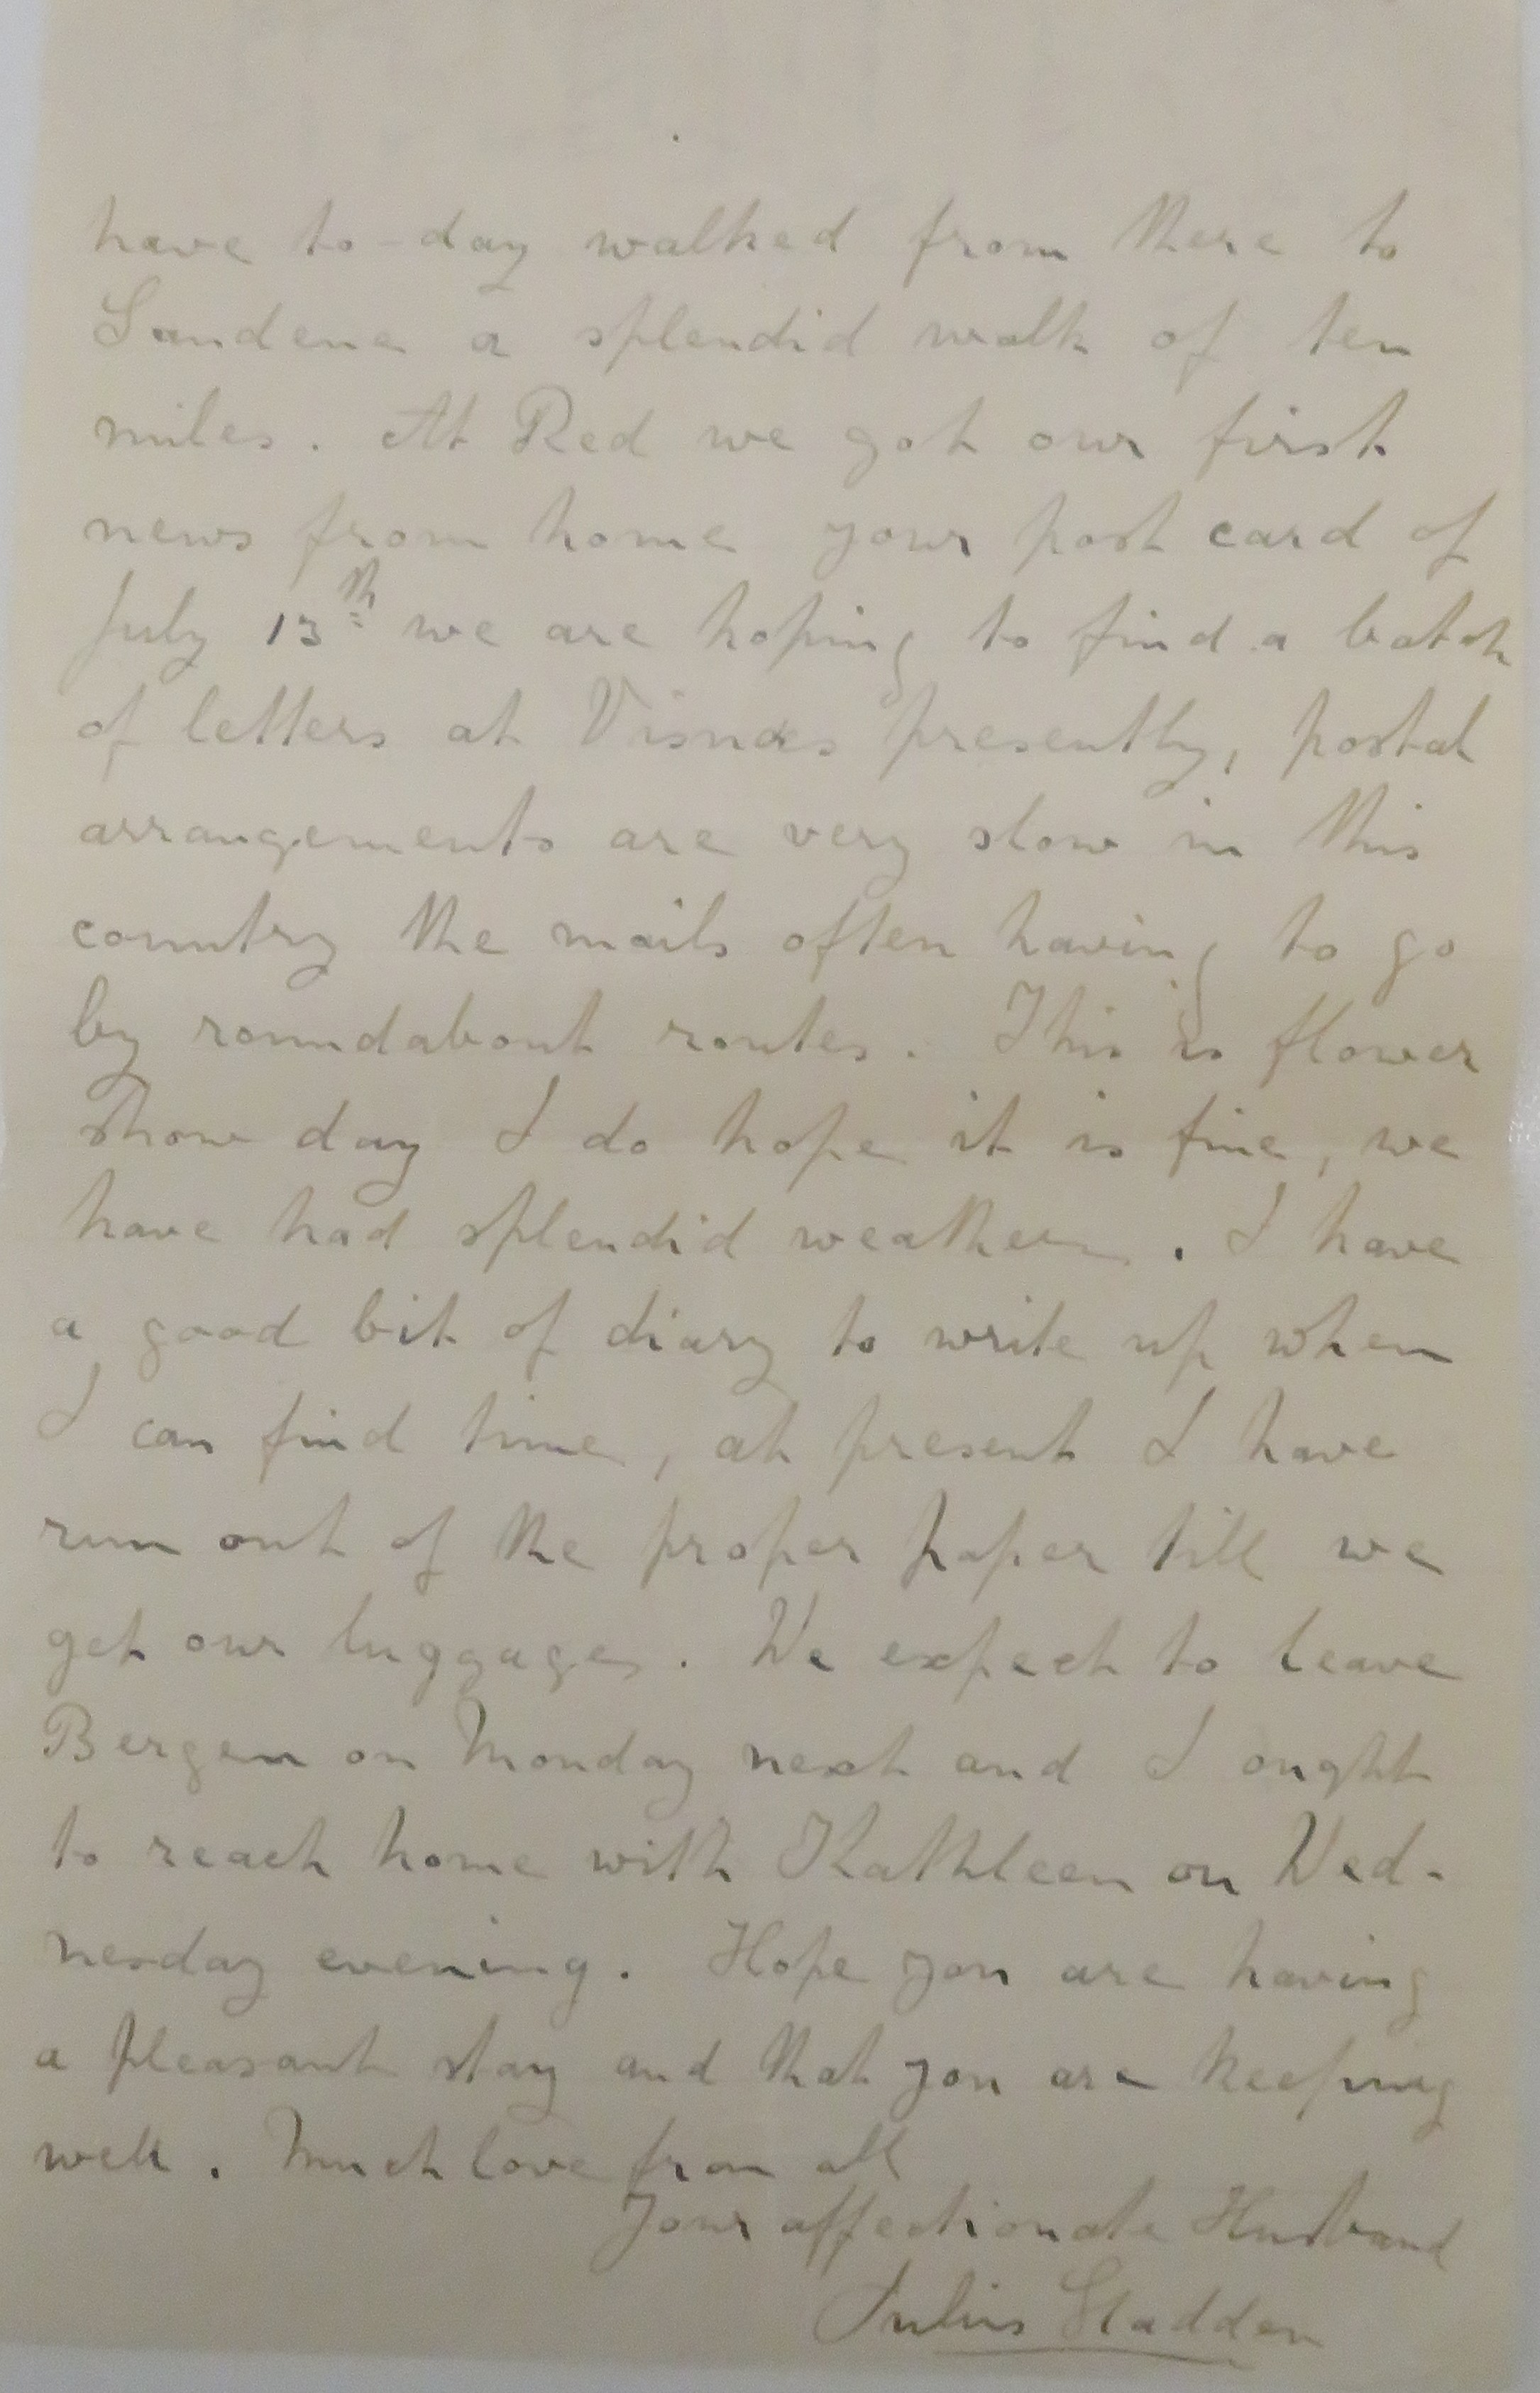 have to-day walked from there to
Sandene a splendid walk of ten
miles. At Red we got our first
news from home your post card of
July 13th we are hoping to find a batch
of letters at Visnaes presently, postal
arrangements are very slow in this
country the mails often having to go
by roundabout routes. This is flower
show day I do hope it is fine, we
have had splendid weather. I have
a good bit of diary to write up when
I can find time, at present I have
run out of the proper paper till we
get our luggage. We expect to leave
Bergen on Monday next and I ought
to reach home with Kathleen on Wed-
nesday evening. Hope you are having
a pleasant stay and that you are keeping
well. Much love from all
Your affectionate Husband
Julius Sladden